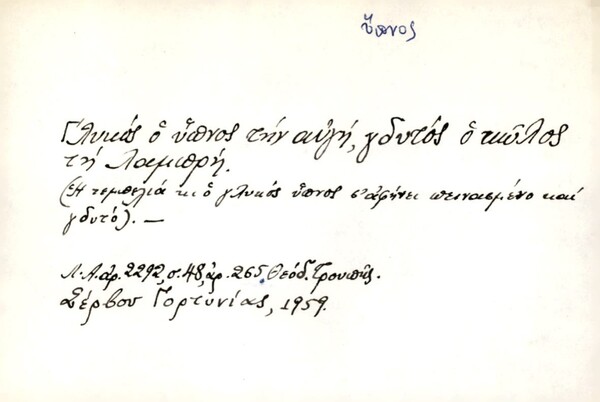 ὕπνος
Γλυκός ὁ ὕπνος τήν αὐγή, γδυτός ὁ κῶλος
τή Λαμπρή.
(Ἡ τεμπελιά κι ὁ γλυκός ὕπνος σ' ἀφήνει πεινασμένο καί
γδυτό). —
Λ.Α. ἀρ. 2292, σ. 48, ἀρ. 265. Θεόδ. Τρουπῆς.
Σέρβου Γορτυνίας, 1959.